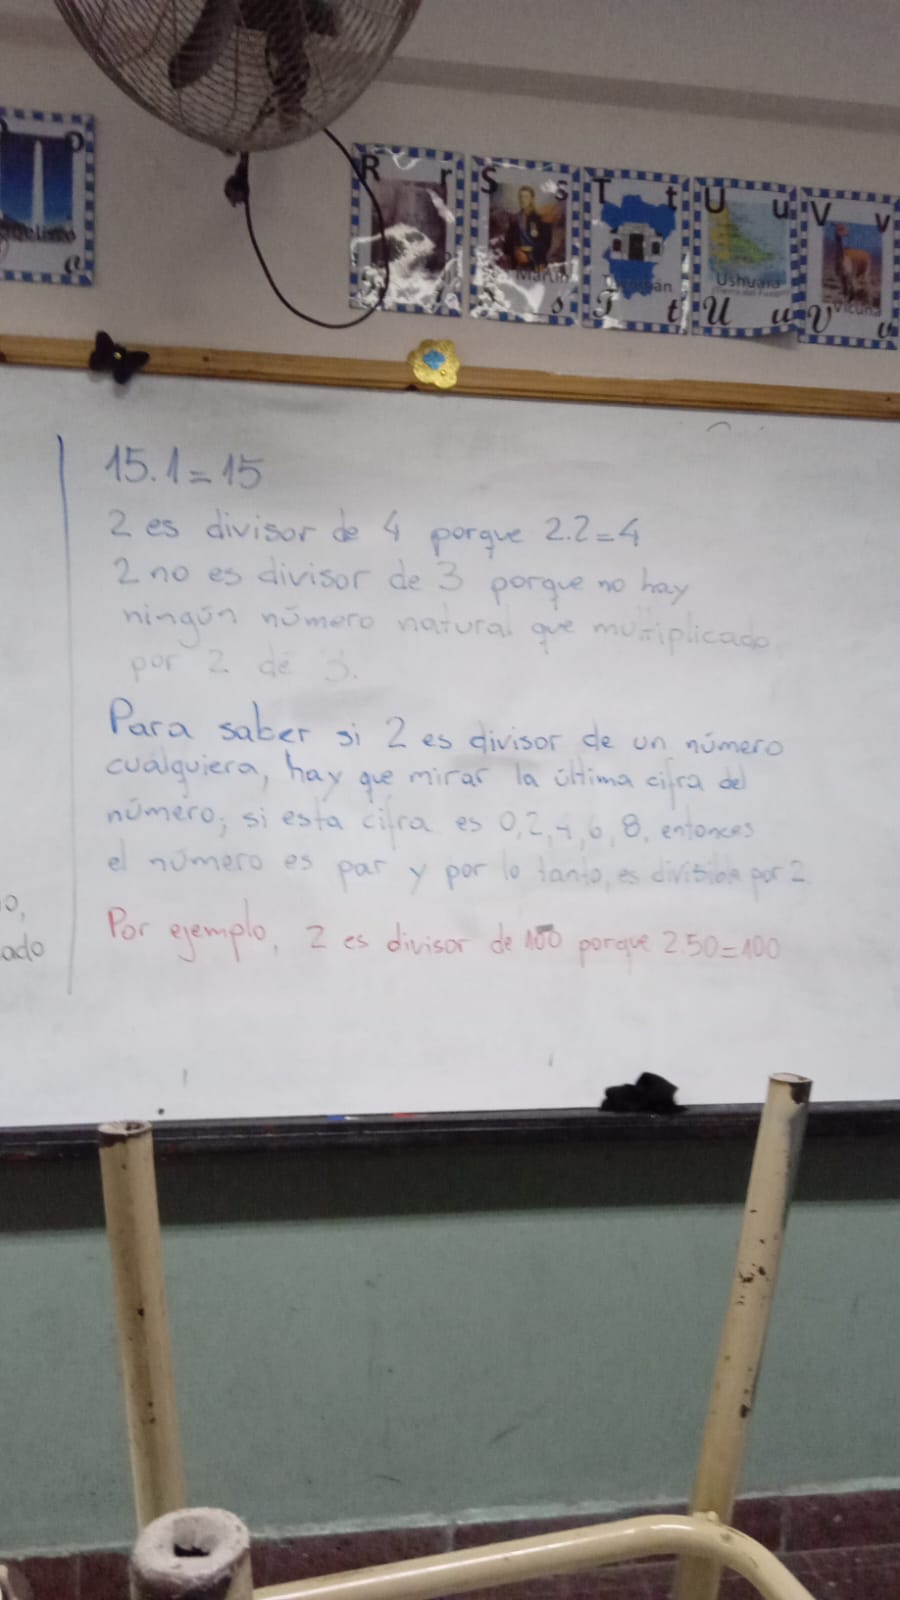 R r
S s
T t
U u
V v
Ushuaia
Vicuña
s
T t
U u
V v
15.1=15
2 es divisor de 4 porque 2.2=4
2 no es divisor de 3 porque no hay
ningún número natural que multiplicado
por 2 dé 3.
Para saber si 2 es divisor de un número
cualquiera, hay que mirar la última cifra del
número; si esta cifra es 0,2,4,6,8, entonces
el número es par y por lo tanto, es divisible por 2
Por ejemplo, 2 es divisor de 100 porque 2.50=100
ado